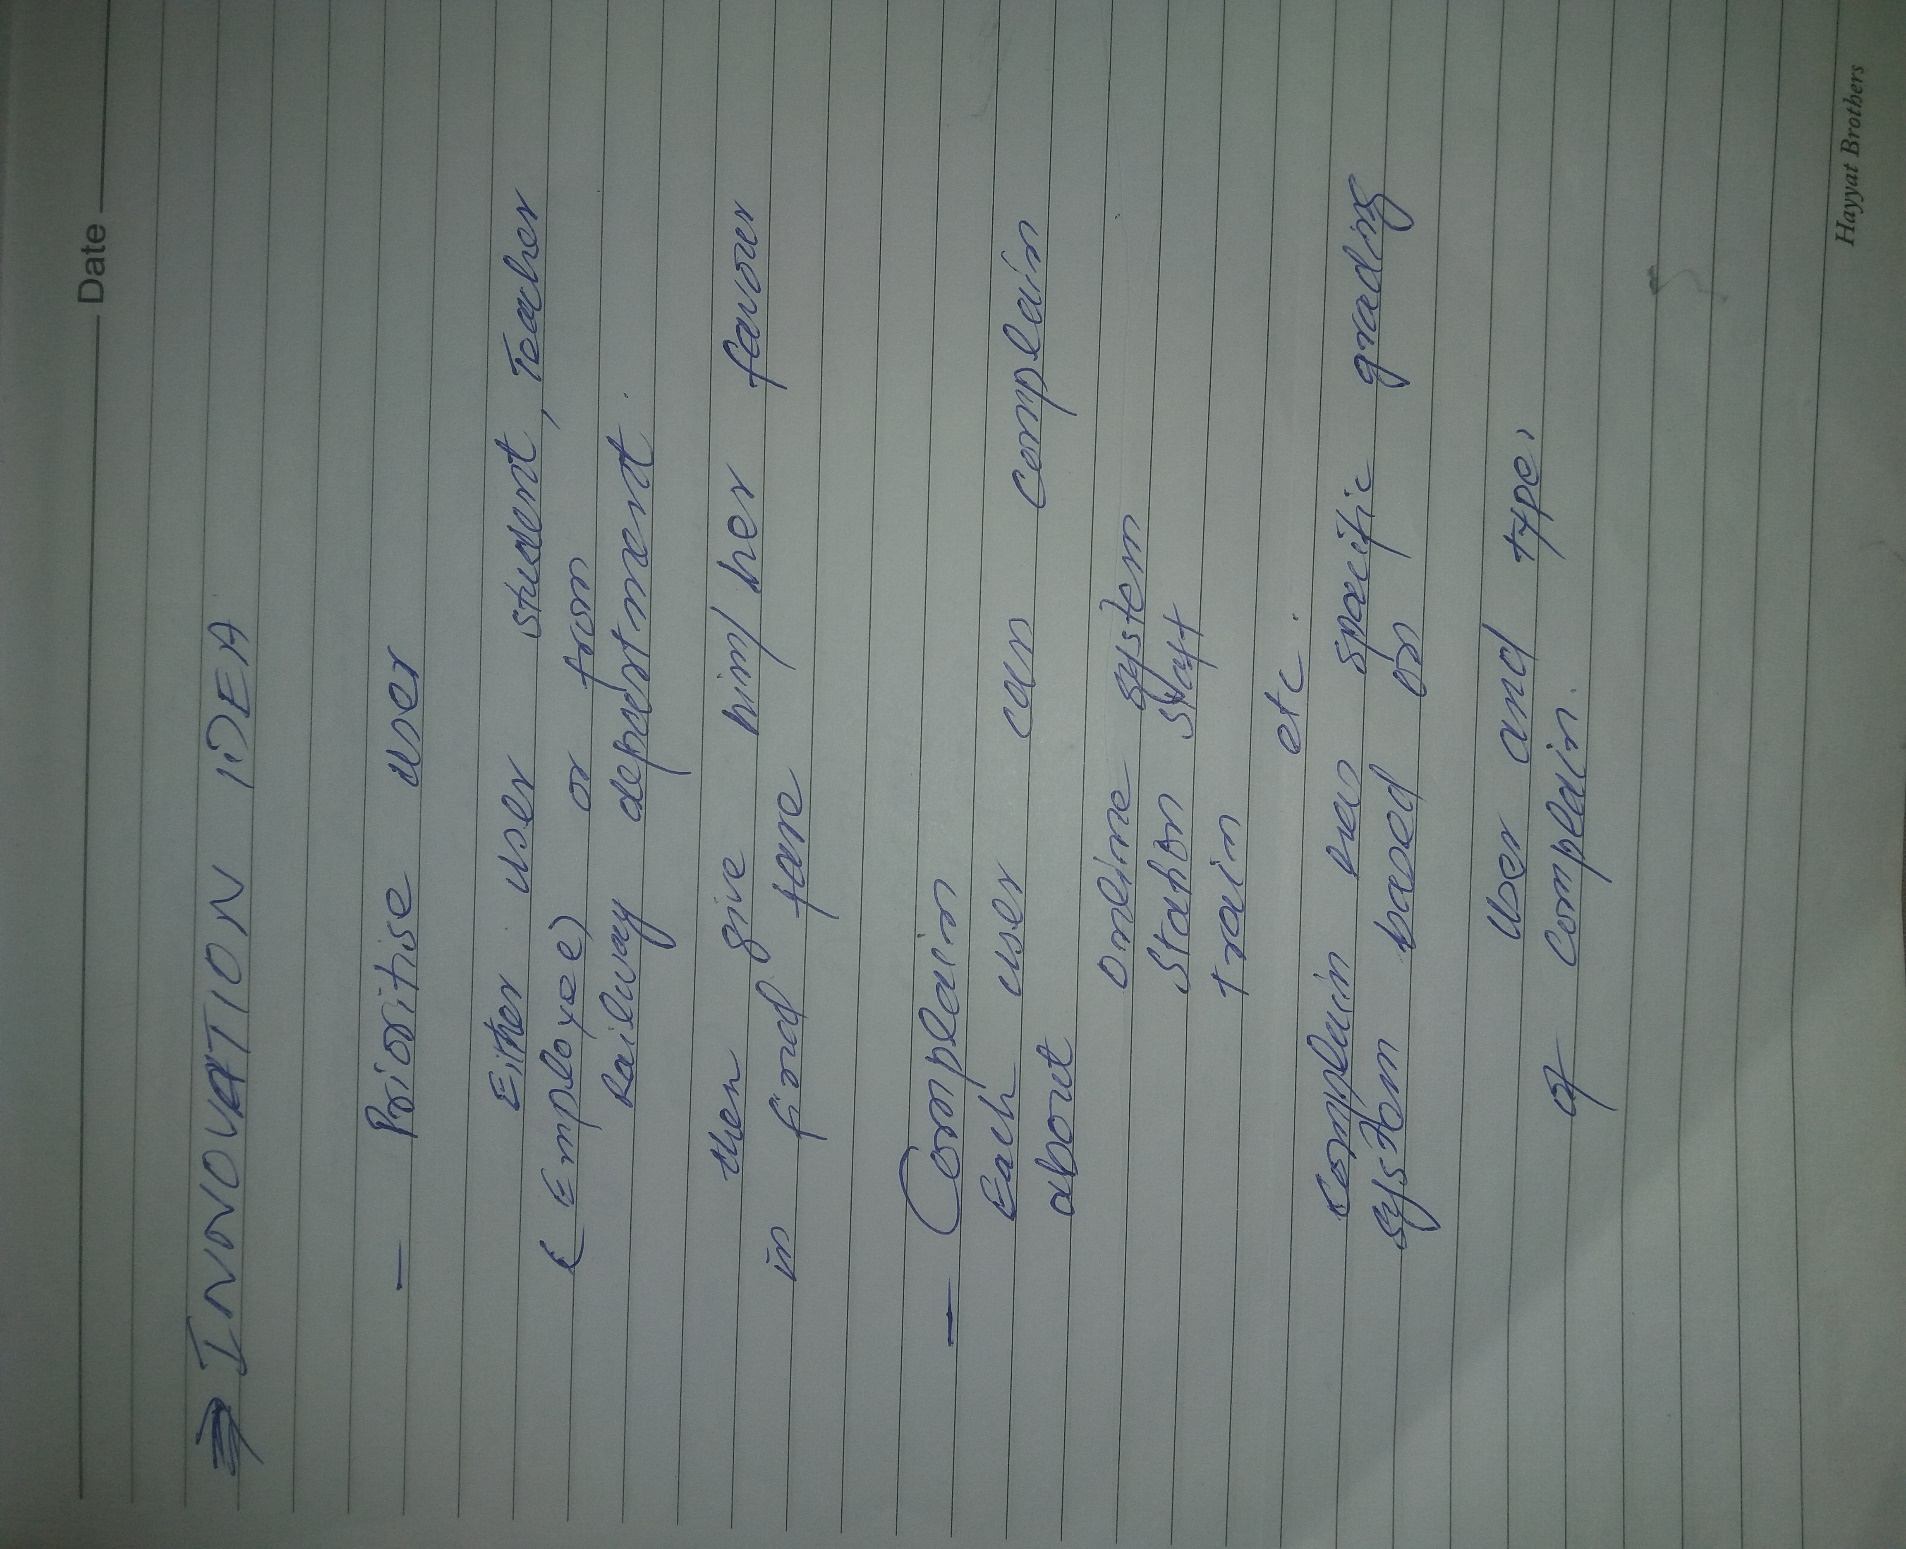 Date
⇒ INNOVATION IDEA
— Prioritise user
Either user student, Teacher
(Employee) or from
Railway department.
then give him/her favour
in final fare
— Complain
Each user can complain
about
online system
station staff
train
etc.
Complain has specific grading
system based on
User and type
of complain.
Hayyat Brothers